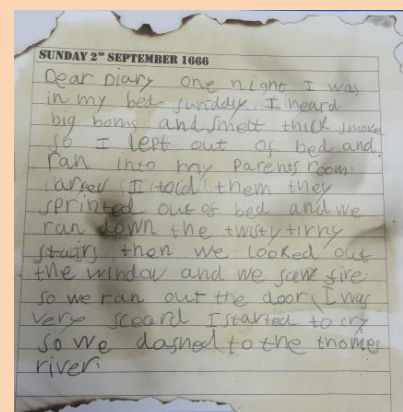 SUNDAY 2ND SEPTEMBER 1666
Dear Diary one night I was
in my bed sunddly I heard
big boms and smelt thick smoke
so I lept out of bed and
ran into my parents room.
I told them they
sprinted out of bed and we
ran down the twisty tirny
stairs then we looked out
the window and we saw fire.
so we ran out the door, I was
very sceard I started to cry
so we dashed to the thames
river.